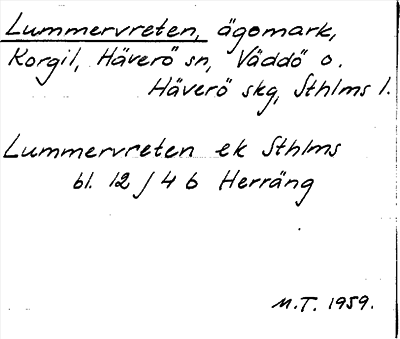 Lummervreten, ägomark,
Korgil, Häverö sn, Väddö o.
Häverö skg, Sthlms l.
Lummervreten ek Sthlms
bl. 12 J 4 b Herräng
M.T. 1959.